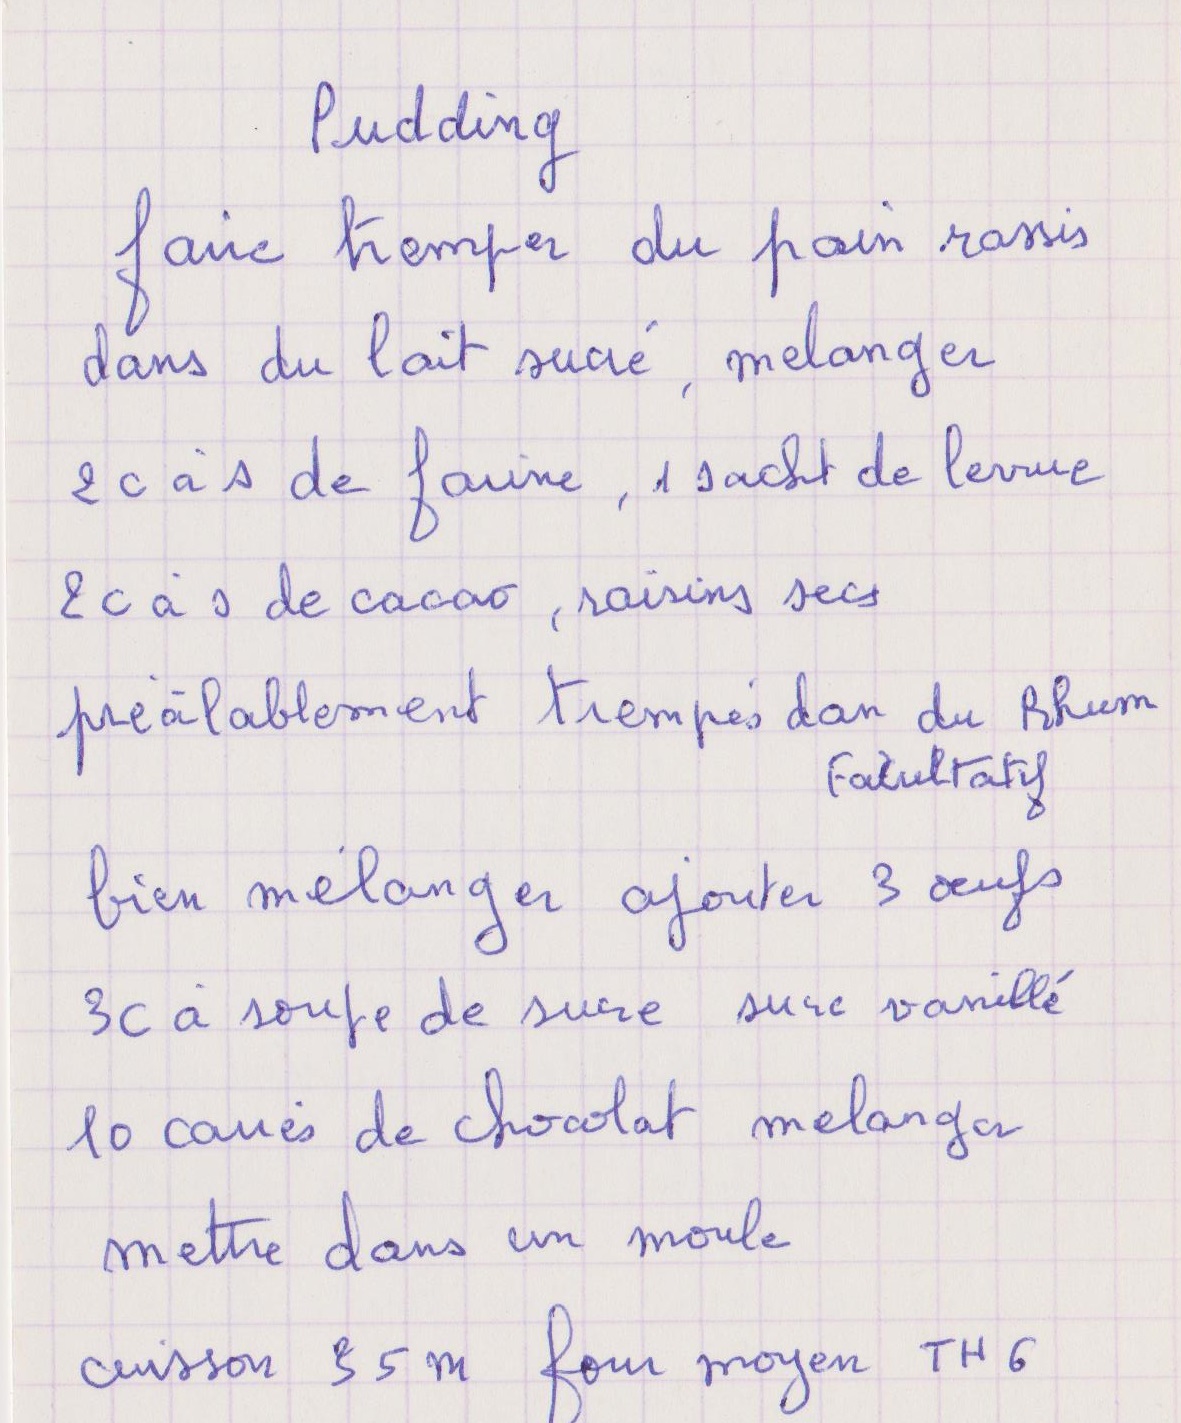 Pudding
faire tremper du pain rassis
dans du lait sucré, melanger
2 c à s de farine, 1 sachet de levure
2 c à s de cacao, raisins secs
préàlablement trempés dan du Rhum
Facultatif
bien mélanger ajouter 3 œufs
3c à soupe de sucre sucre vanillé
10 carrés de chocolat melanger
mettre dans un moule
cuisson 35 m four moyen TH 6